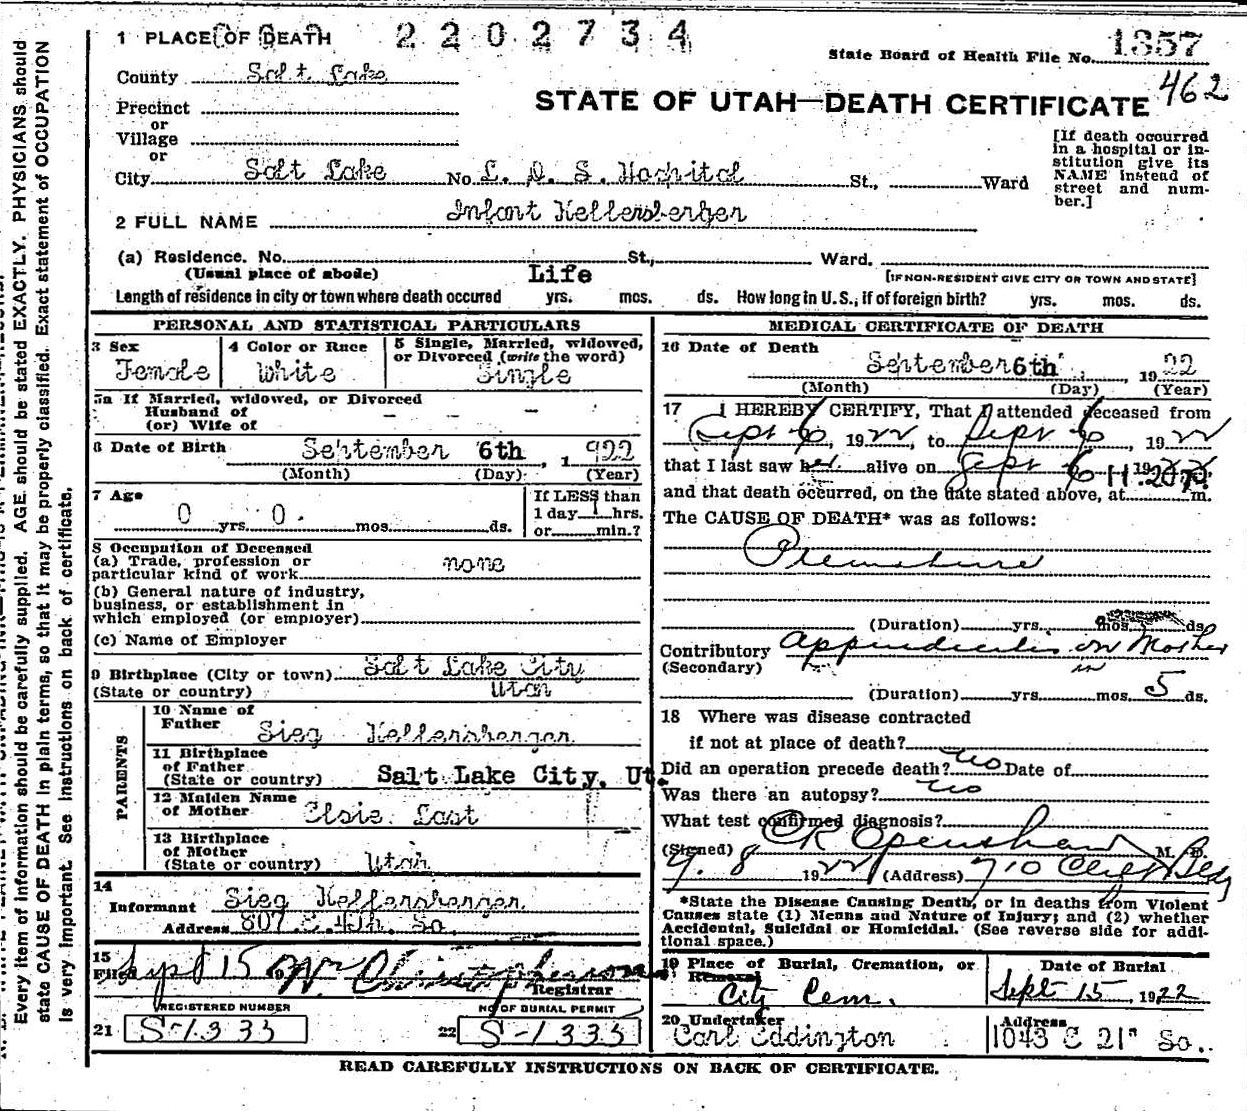 1 PLACE OF DEATH 2202734
State Board of Health File No. 1357
462
County Salt Lake
STATE OF UTAH—DEATH CERTIFICATE
Precinct
or
Village
or
City Salt Lake No. L. D. S. Hospital St., Ward
[If death occurred in a hospital or institution give its NAME instead of street and number.]
2 FULL NAME Infant Kellersberger
(a) Residence. No. St., Ward.
(Usual place of abode) Life [IF NON-RESIDENT GIVE CITY OR TOWN AND STATE]
Length of residence in city or town where death occured yrs. mos. ds. How long in U.S., if of foreign birth? yrs. mos. ds.
PERSONAL AND STATISTICAL PARTICULARS
3 Sex Female
4 Color or Race White
5 Single, Married, widowed, or Divorced (write the word) Single
5a If Married, widowed, or Divorced
Husband of
(or) Wife of – – –
6 Date of Birth September 6th, 1922
(Month) (Day) (Year)
7 Age 0 yrs. 0. mos. ds.
If LESS than
1 day 1 hrs.
or min.?
8 Occupation of Deceased
(a) Trade, profession or
particular kind of work none
(b) General nature of industry,
business, or establishment in
which employed (or employer)
(c) Name of Employer
9 Birthplace (City or town) Salt Lake City
(State or country) Utah
PARENTS
10 Name of
Father Sieg Kellersberger
11 Birthplace
of Father
(State or country) Salt Lake City, Ut.
12 Maiden Name
of Mother Elsie Last
13 Birthplace
of Mother
(State or country) Utah
14
Informant Sieg Kellersberger
Address 807 E. 4th. So.
15
Filed Sept 15 19 Wm Christopherson
Registrar
REGISTERED NUMBER
21 S-1333
NO OF BURIAL PERMIT
22 S-1333
MEDICAL CERTIFICATE OF DEATH
16 Date of Death
September 6th, 1922
(Month) (Day) (Year)
17 I HEREBY CERTIFY, That I attended deceased from
Sept 6, 1922, to Sept 6, 1922
that I last saw her alive on Sept 6 1922
and that death occurred, on the date stated above, at m.
The CAUSE OF DEATH* was as follows:
Premature
(Duration) yrs. mos. ds.
Contributory Appendicitis in Mother
(Secondary) in
(Duration) yrs. mos. 5 ds.
18 Where was disease contracted
if not at place of death?
Did an operation precede death? no Date of
Was there an autopsy? no
What test confirmed diagnosis?
(Signed) CR Openshaw M. D.
9. 8 1922 (Address) 710 Clift Bldg
*State the Disease Causing Death, or in deaths from Violent
Causes state (1) Means and Nature of Injury; and (2) whether
Accidental, Suicidal or Homicidal. (See reverse side for additional space.)
19 Place of Burial, Cremation, or
Removal
City Cem.
Date of Burial
Sept 15, 1922
20 Undertaker
Carl Eddington
Address
1043 E 21" So.
READ CAREFULLY INSTRUCTIONS ON BACK OF CERTIFICATE.
Every item of information should be carefully supplied. AGE should be stated EXACTLY. PHYSICIANS should
state CAUSE OF DEATH in plain terms, so that it may be properly classified. Exact statement of OCCUPATION
is very important. See instructions on back of certificate.